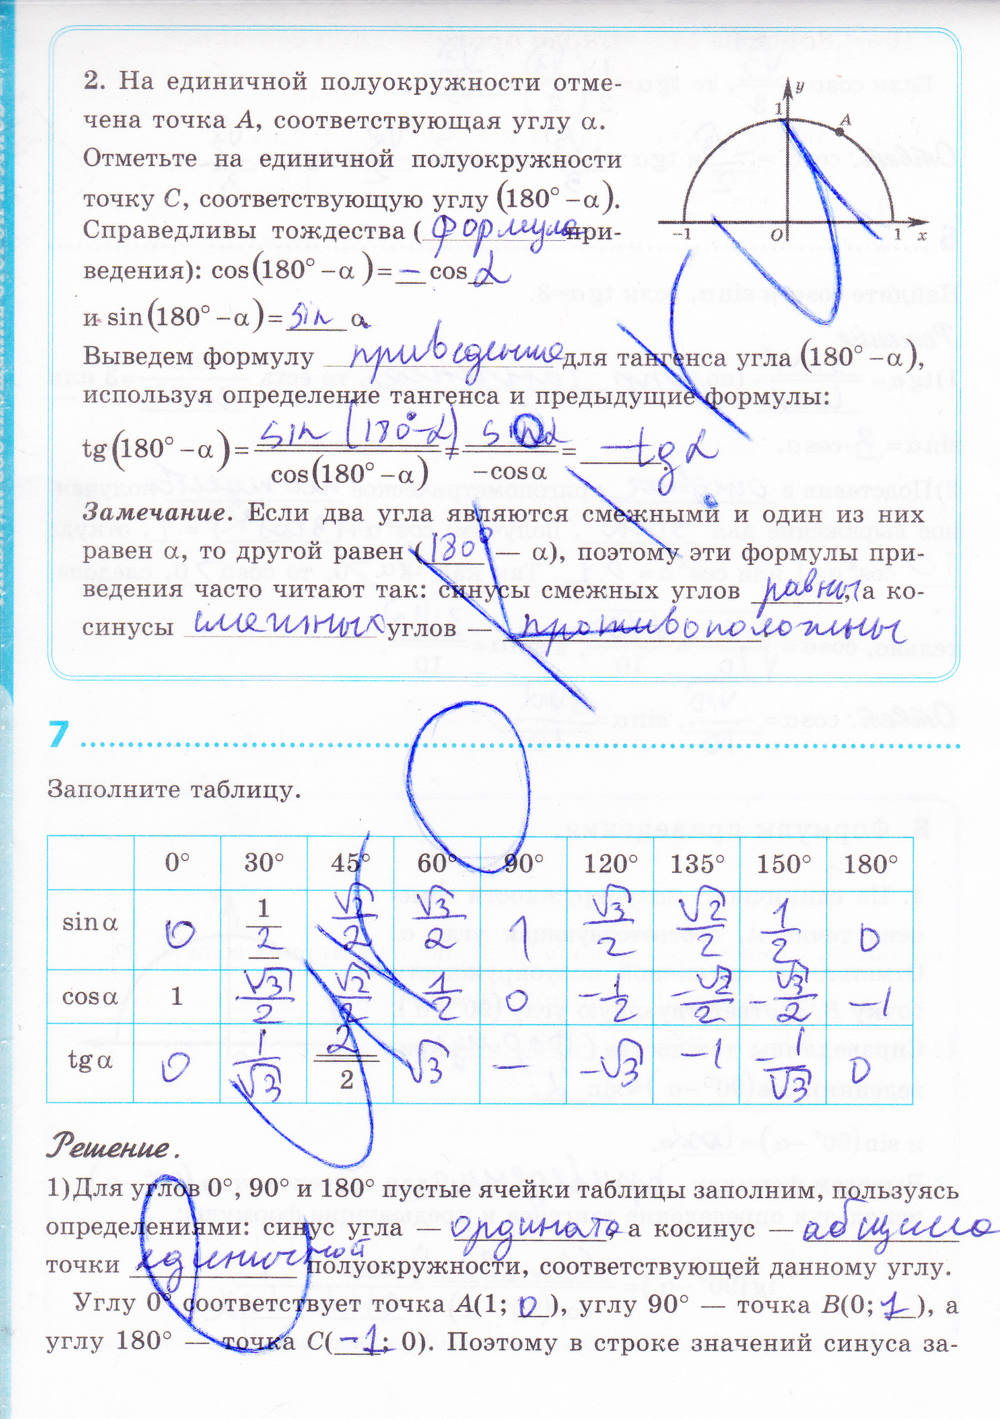 2. На единичной полуокружности отме-
чена точка A, соответствующая углу α.
Отметьте на единичной полуокружности
точку C, соответствующую углу (180° − α).
Справедливы тождества (формула при-
ведения): cos(180° − α) = − cos α
и sin(180° − α) = sin α
y
1
A
−1
O
1
x
Выведем формулу приведения для тангенса угла (180° − α),
используя определение тангенса и предыдущие формулы:
tg(180° − α) = sin(180° − α) / cos(180° − α) = sin α / −cos α = −tg α
Замечание. Если два угла являются смежными и один из них
равен α, то другой равен (180° — α), поэтому эти формулы при-
ведения часто читают так: синусы смежных углов равны, а ко-
синусы смежных углов — противоположны
7
Заполните таблицу.
0° 30° 45° 60° 90° 120° 135° 150° 180°
sin α 0 1/2 √2/2 √3/2 1 √3/2 √2/2 1/2 0
cos α 1 √3/2 √2/2 1/2 0 −1/2 −√2/2 −√3/2 −1
tg α 0 1/√3 2/2 √3 — −√3 −1 −1/√3 0
Решение.
1) Для углов 0°, 90° и 180° пустые ячейки таблицы заполним, пользуясь
определениями: синус угла — ордината, а косинус — абцисса
точки единичной полуокружности, соответствующей данному углу.
Углу 0° соответствует точка A(1; 0), углу 90° — точка B(0; 1), а
углу 180° — точка C(−1; 0). Поэтому в строке значений синуса за-